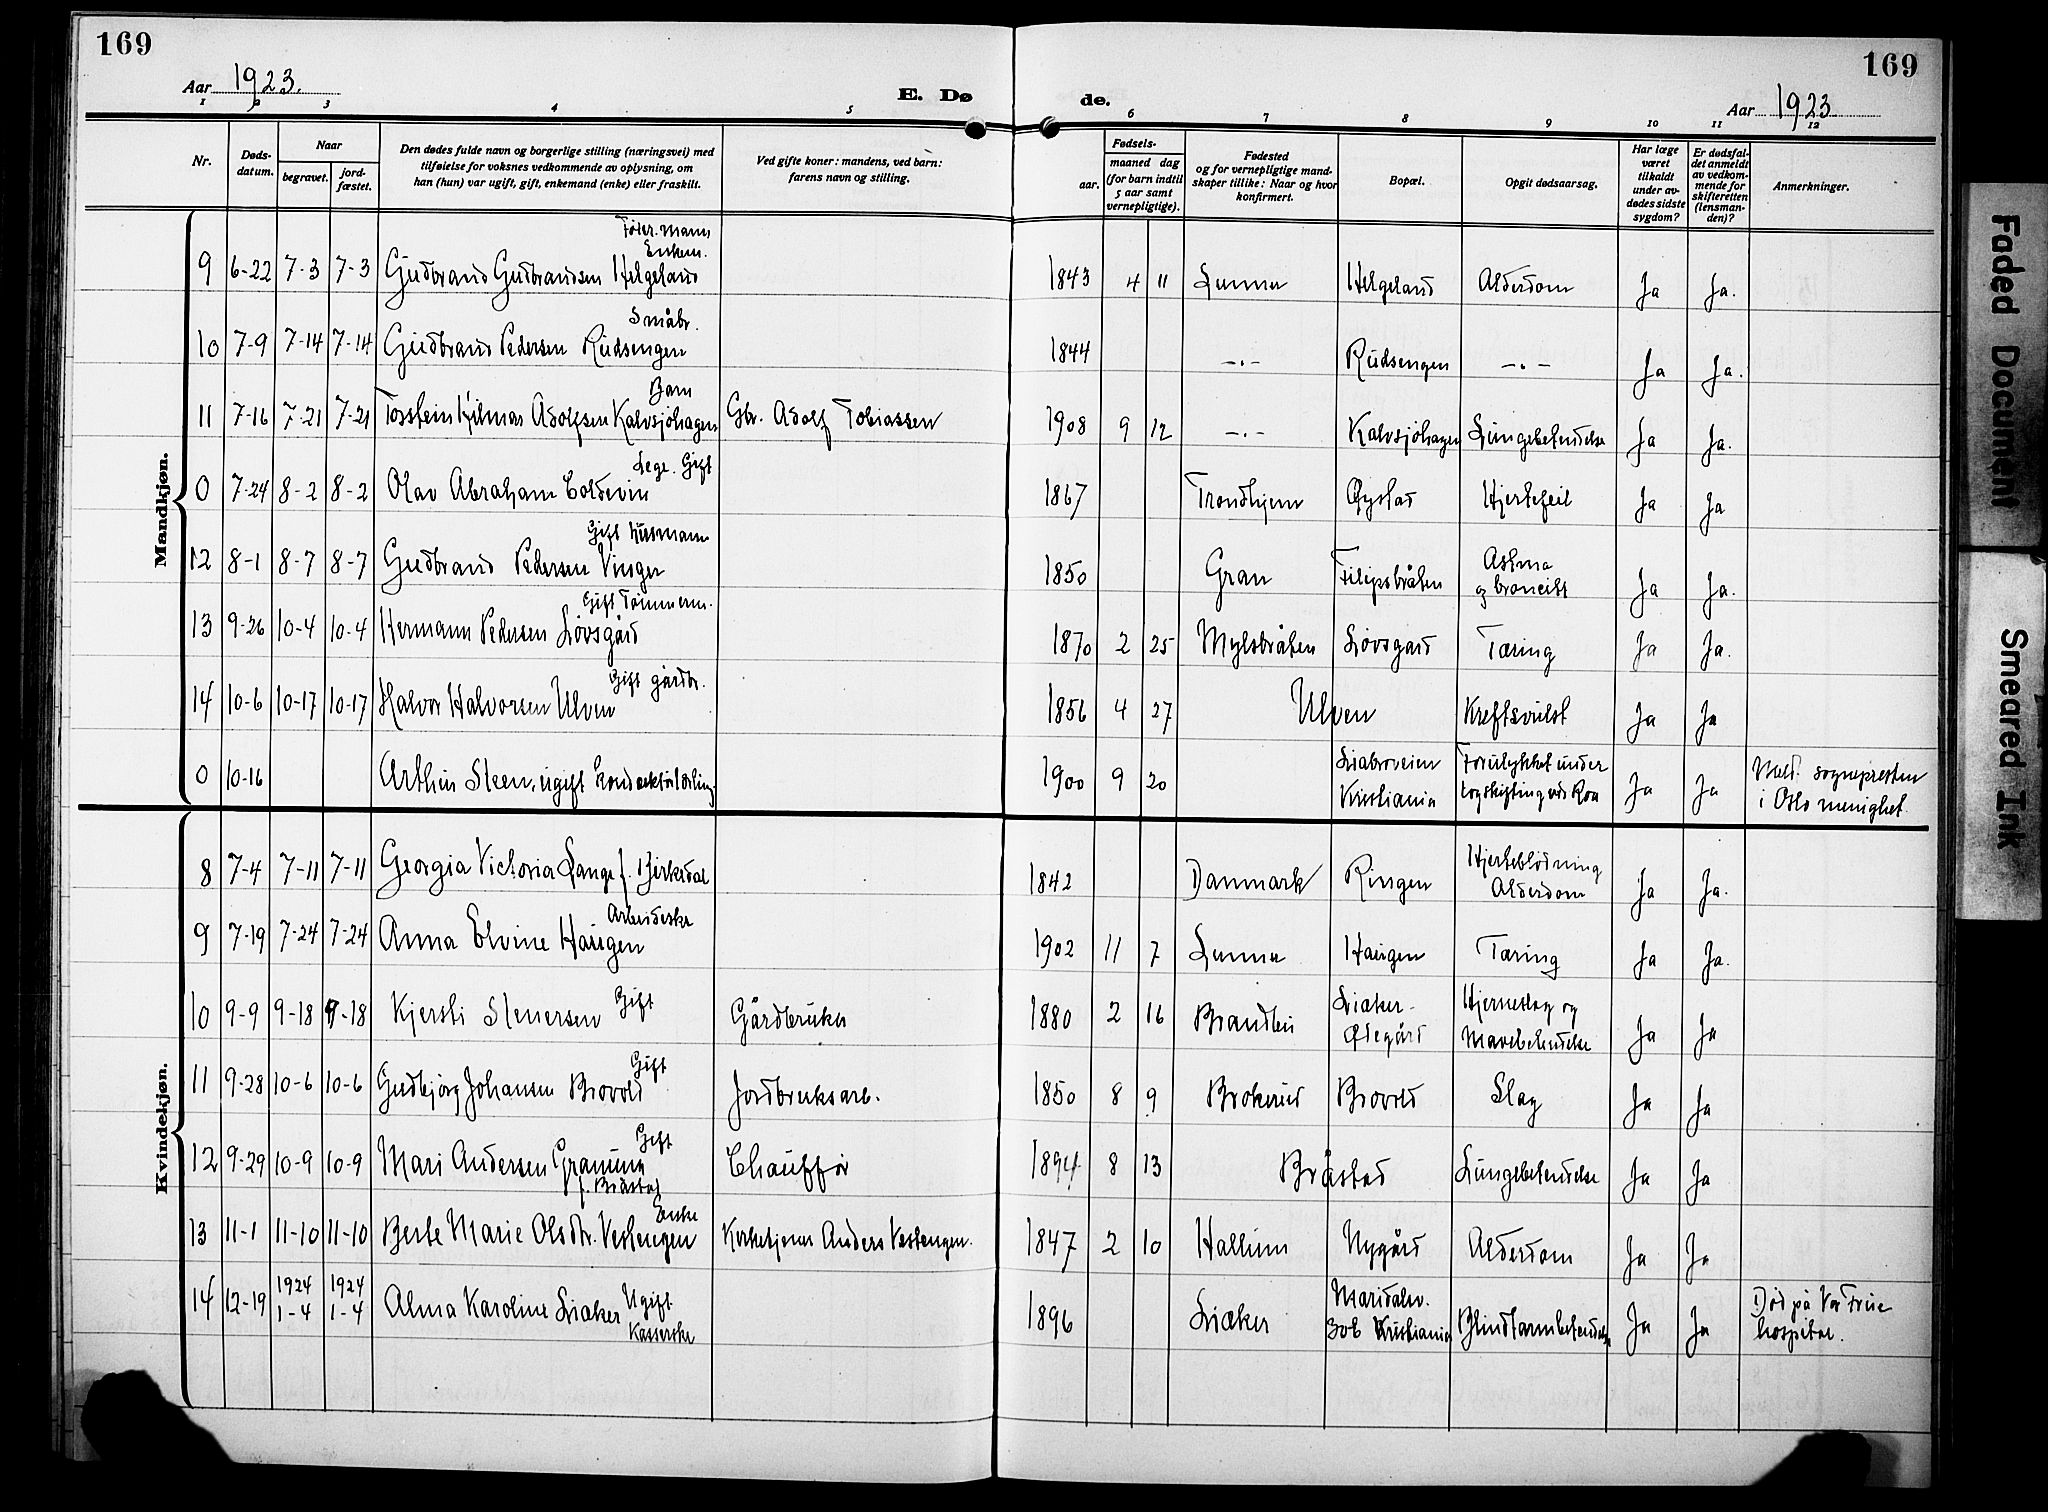 169
169
Aar 1923.
E. Dø
de.
Aar 1923
1 2 3 4 5 6 7 8 9 10 11 12
Nr.
Døds-
datum.
Naar
begravet.
jord-
fæstet.
Den dødes fulde navn og borgerlige stilling (næringsvei) med
tilføielse for voksnes vedkommende av oplysning, om
han (hun) var ugift, gift, enkemand (enke) eller fraskilt.
Ved gifte koner: mandens, ved barn:
farens navn og stilling.
Fødsels-
aar.
maaned dag
(for barn indtil
5 aar samt
vernepligtige).
Fødested
og for vernepligtige mand-
skaper tillike: Naar og hvor
konfirmert.
Bopæl.
Opgit dødsaarsag.
Har læge
været
tilkaldt
under av-
dødes sidste
sygdom?
Er dødsfal-
det anmeldt
av vedkom-
mende for
skifteretten
(lensman-
den)?
Anmerkninger.
Mandkjøn.
Føder. mann
Enkem.
9 6-22 7-3 7-3 Gudbrand Gudbrandsen Helgeland 1843 4 11 Lunner Helgeland Alderdom Ja Ja.
Småbr.
10 7-9 7-14 7-14 Gudbrand Pedersen Rudsengen 1844 —.— Rudsengen —.— Ja Ja.
Barn
11 7-16 7-21 7-21 Torstein Hilmar Adolfsen Kalvsjøhagen Gbr. Adolf Tobiassen 1908 9 12 —.— Kalvsjøhagen Lungebetendelse Ja Ja.
Lege. Gift
0 7-24 8-2 8-2 Olav Abraham Coldevin 1867 Trondhjem Øystad Hjertefeil Ja Ja
Gift husmann
12 8-1 8-7 8-7 Gudbrand Pedersen Vinger 1850 Gran Filipsbråten Astma
og broncitt Ja Ja.
Gift Tømmerm.
13 9-26 10-4 10-4 Hermann Pedersen Løvsgård 1870 2 25 Mylsbråten Løvsgård Tæring Ja Ja.
Gift gårdbr.
14 10-6 10-17 10-17 Halvor Halvorsen Ulven 1856 4 27 Ulven Kreftsvulst Ja Ja
0 10-16 Arthur Steen, ugift konduktørlærling 1900 9 20 Liabroveien
Kristiania Forulykket under
togskifting ved Roa Ja Ja Meld. sognepresten
i Oslo menighet.
Kvindekjøn.
8 7-4 7-11 7-11 Georgia Victoria Lange f. Birkedal 1842 Danmark Ringen Hjerteblødning
Alderdom Ja Ja.
Arbeiderske
9 7-19 7-24 7-24 Anna Elvine Haugen 1902 11 7 Lunner Haugen Tæring Ja Ja.
10 9-9 9-18 9-18 Kjersti Stenersen Gift Gårdbruker 1880 2 16 Brandbu Liaker-
Ødegård Hjerneslag og
Mavebetendelse Ja Ja
Gift
11 9-28 10-6 10-6 Gudbjørg Johansen Brovold Jordbruksarb. 1850 8 9 Brokerud Brovold Slag Ja Ja
Gift
12 9-29 10-9 10-9 Mari Andersen Granum
f. Bråstad Chauffør 1894 8 13 Bråstad Lungebetendelse Ja Ja
Enke
13 11-1 11-10 11-10 Berte Marie Olsdtr. Vestengen Kirketjener Anders Vestengen. 1847 2 10 Hallum Nygård Alderdom Ja Ja
14 12-19 1924
1-4 1924
1-4 Alma Karoline Liaker Ugift
Kasserske 1896 Liaker Maridalsv.
30b Kristiania Blindtarmbetendelse Ja Ja Død på Vor Frue
hospital.
Faded Document
Smeared Ink